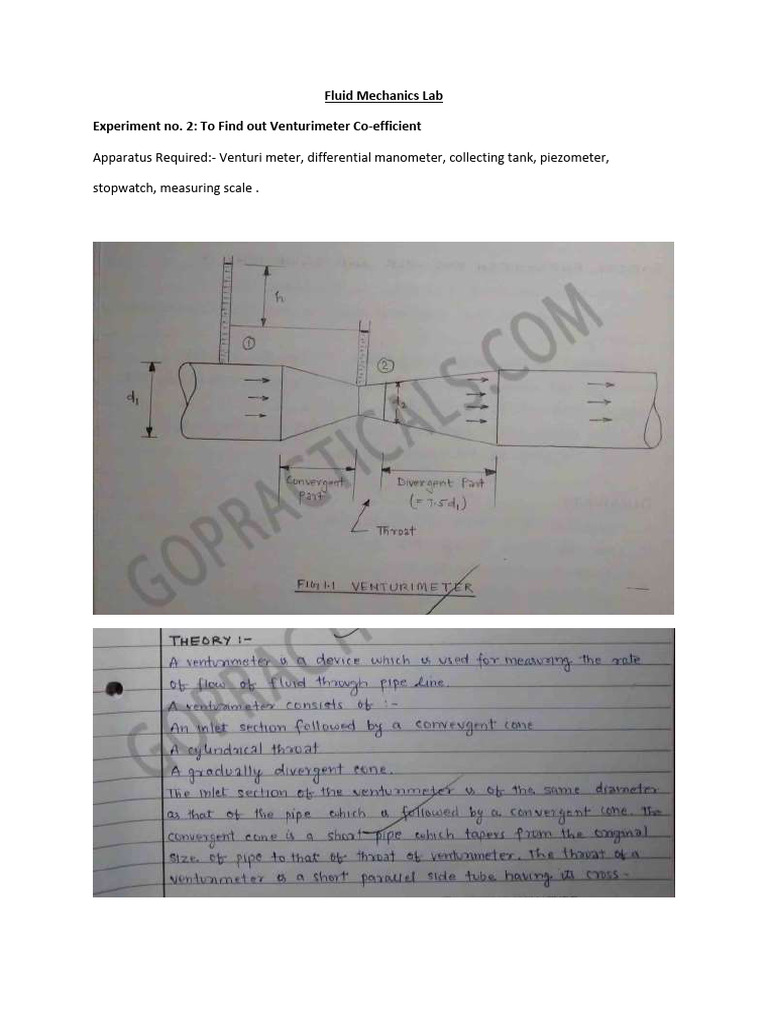 Fluid Mechanics Lab
Experiment no. 2: To Find out Venturimeter Co-efficient
Apparatus Required:- Venturi meter, differential manometer, collecting tank, piezometer,
stopwatch, measuring scale .
h
①
②
d₁
d₂
Convergent
Part
Divergent Part
(= 7.5d₁)
Throat
FIG 1.1 VENTURIMETER
GOPRACTICALS.COM
THEORY :-
A venturimeter is a device which is used for measuring the rate
of flow of fluid through pipe line.
A venturameter consists of :-
An inlet section followed by a convevgent cone
A cylindrical throat
A gradually divergent cone.
The inlet section of the venturimeter is of the same diameter
as that of the pipe which is followed by a convergent cone. The
convergent cone is a short pipe which tapers from the original
size of pipe to that of throat of venturimeter. The throat of a
venturimeter is a short parallel side tube having its cross-
GOPRACTICALS.COM